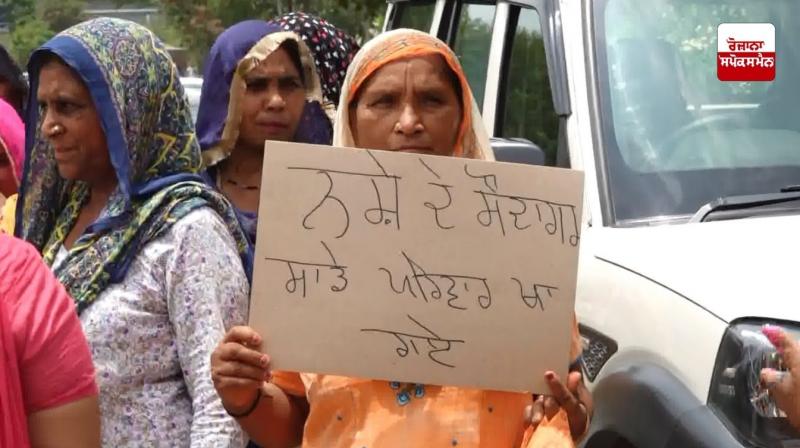 ਰੋਜ਼ਾਨਾ
ਸਪੋਕਸਮੈਨ
ਨਸ਼ੇ ਦੇ ਸੌਦਾਗਰ
ਸਾਡੇ ਪਰਿਵਾਰ ਖਾ
ਗਏ